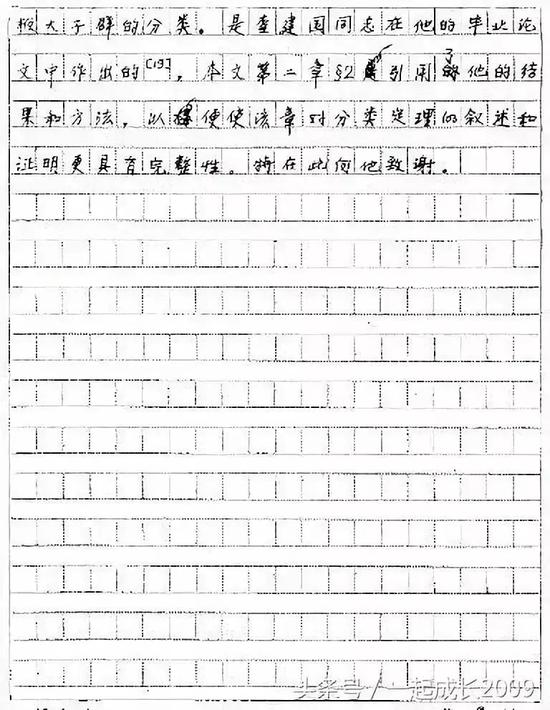 极大子群的分类。是查建国同志在他的毕业论
文中作出的[13]，本文第二章§2引用了他的结
果和方法，以便使该章对分类定理的叙述和
证明更具有完整性。特在此向他致谢。
头条号/一起成长2009